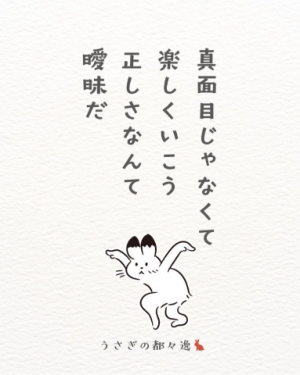 真面目じゃなくて
楽しくいこう
正しさなんて
曖昧だ
うさぎの都々逸